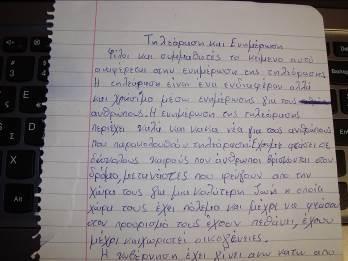 Τηλεόραση και Ενημέρωση
Φίλοι και συμμαθητές το κείμενο αυτό
αναφέρεται στην ενημέρωση της τηλεόρασης
Η τηλεόραση είναι ένα ενδιαφέρον αλλά
και χρήσιμο μέσω ενημέρωσης για τους
ανθρώπους. Η ενημέρωση της τηλεόρασης
περιέχει καλά και κακά νέα για τους ανθρώπους
που παρακολουθούν τηλεόραση. Έχουμε φτάσει σε
δύσκολους καιρούς που άνθρωποι βρίσκονται στον
δρόμο, μετανάστες που φεύγουν απο την
χώρα τους για μια καλύτερη ζωή η οποία
χώρα τους έχει πόλεμο και μέχρι να φτάσουν
στον προορισμό τους έχουν πεθάνει, έχουν
μέχρι και χωριστεί οικογένειες.
Η κυβέρνηση έχει γίνει ανω κατω απο